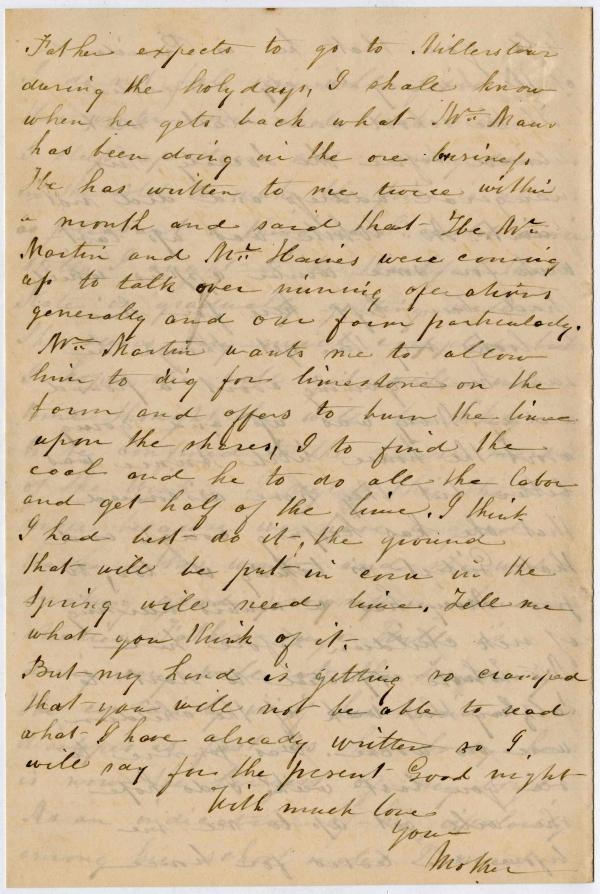 Father expects to go to Millerstown
during the holydays, I shall know
when he gets back what Mr. Mans
has been doing in the ore business
He has written to me twice within
a month and said that He Mr.
Martin and Mr. Haines were coming
up to talk over mining operations
generally and our farm particularly.
Mr. Martin wants me to allow
him to dig for limestone on the
farm and offers to burn the lime
upon the shares, I to find the
coal and he to do all the labor
and get half of the lime. I think
I had best do it, the ground
that will be put in corn in the
spring will need lime. Tell me
what you think of it.
But my hand is getting so cramped
that you will not be able to read
what I have already written so I
will say for the present Good night
With much love
Your
Mother